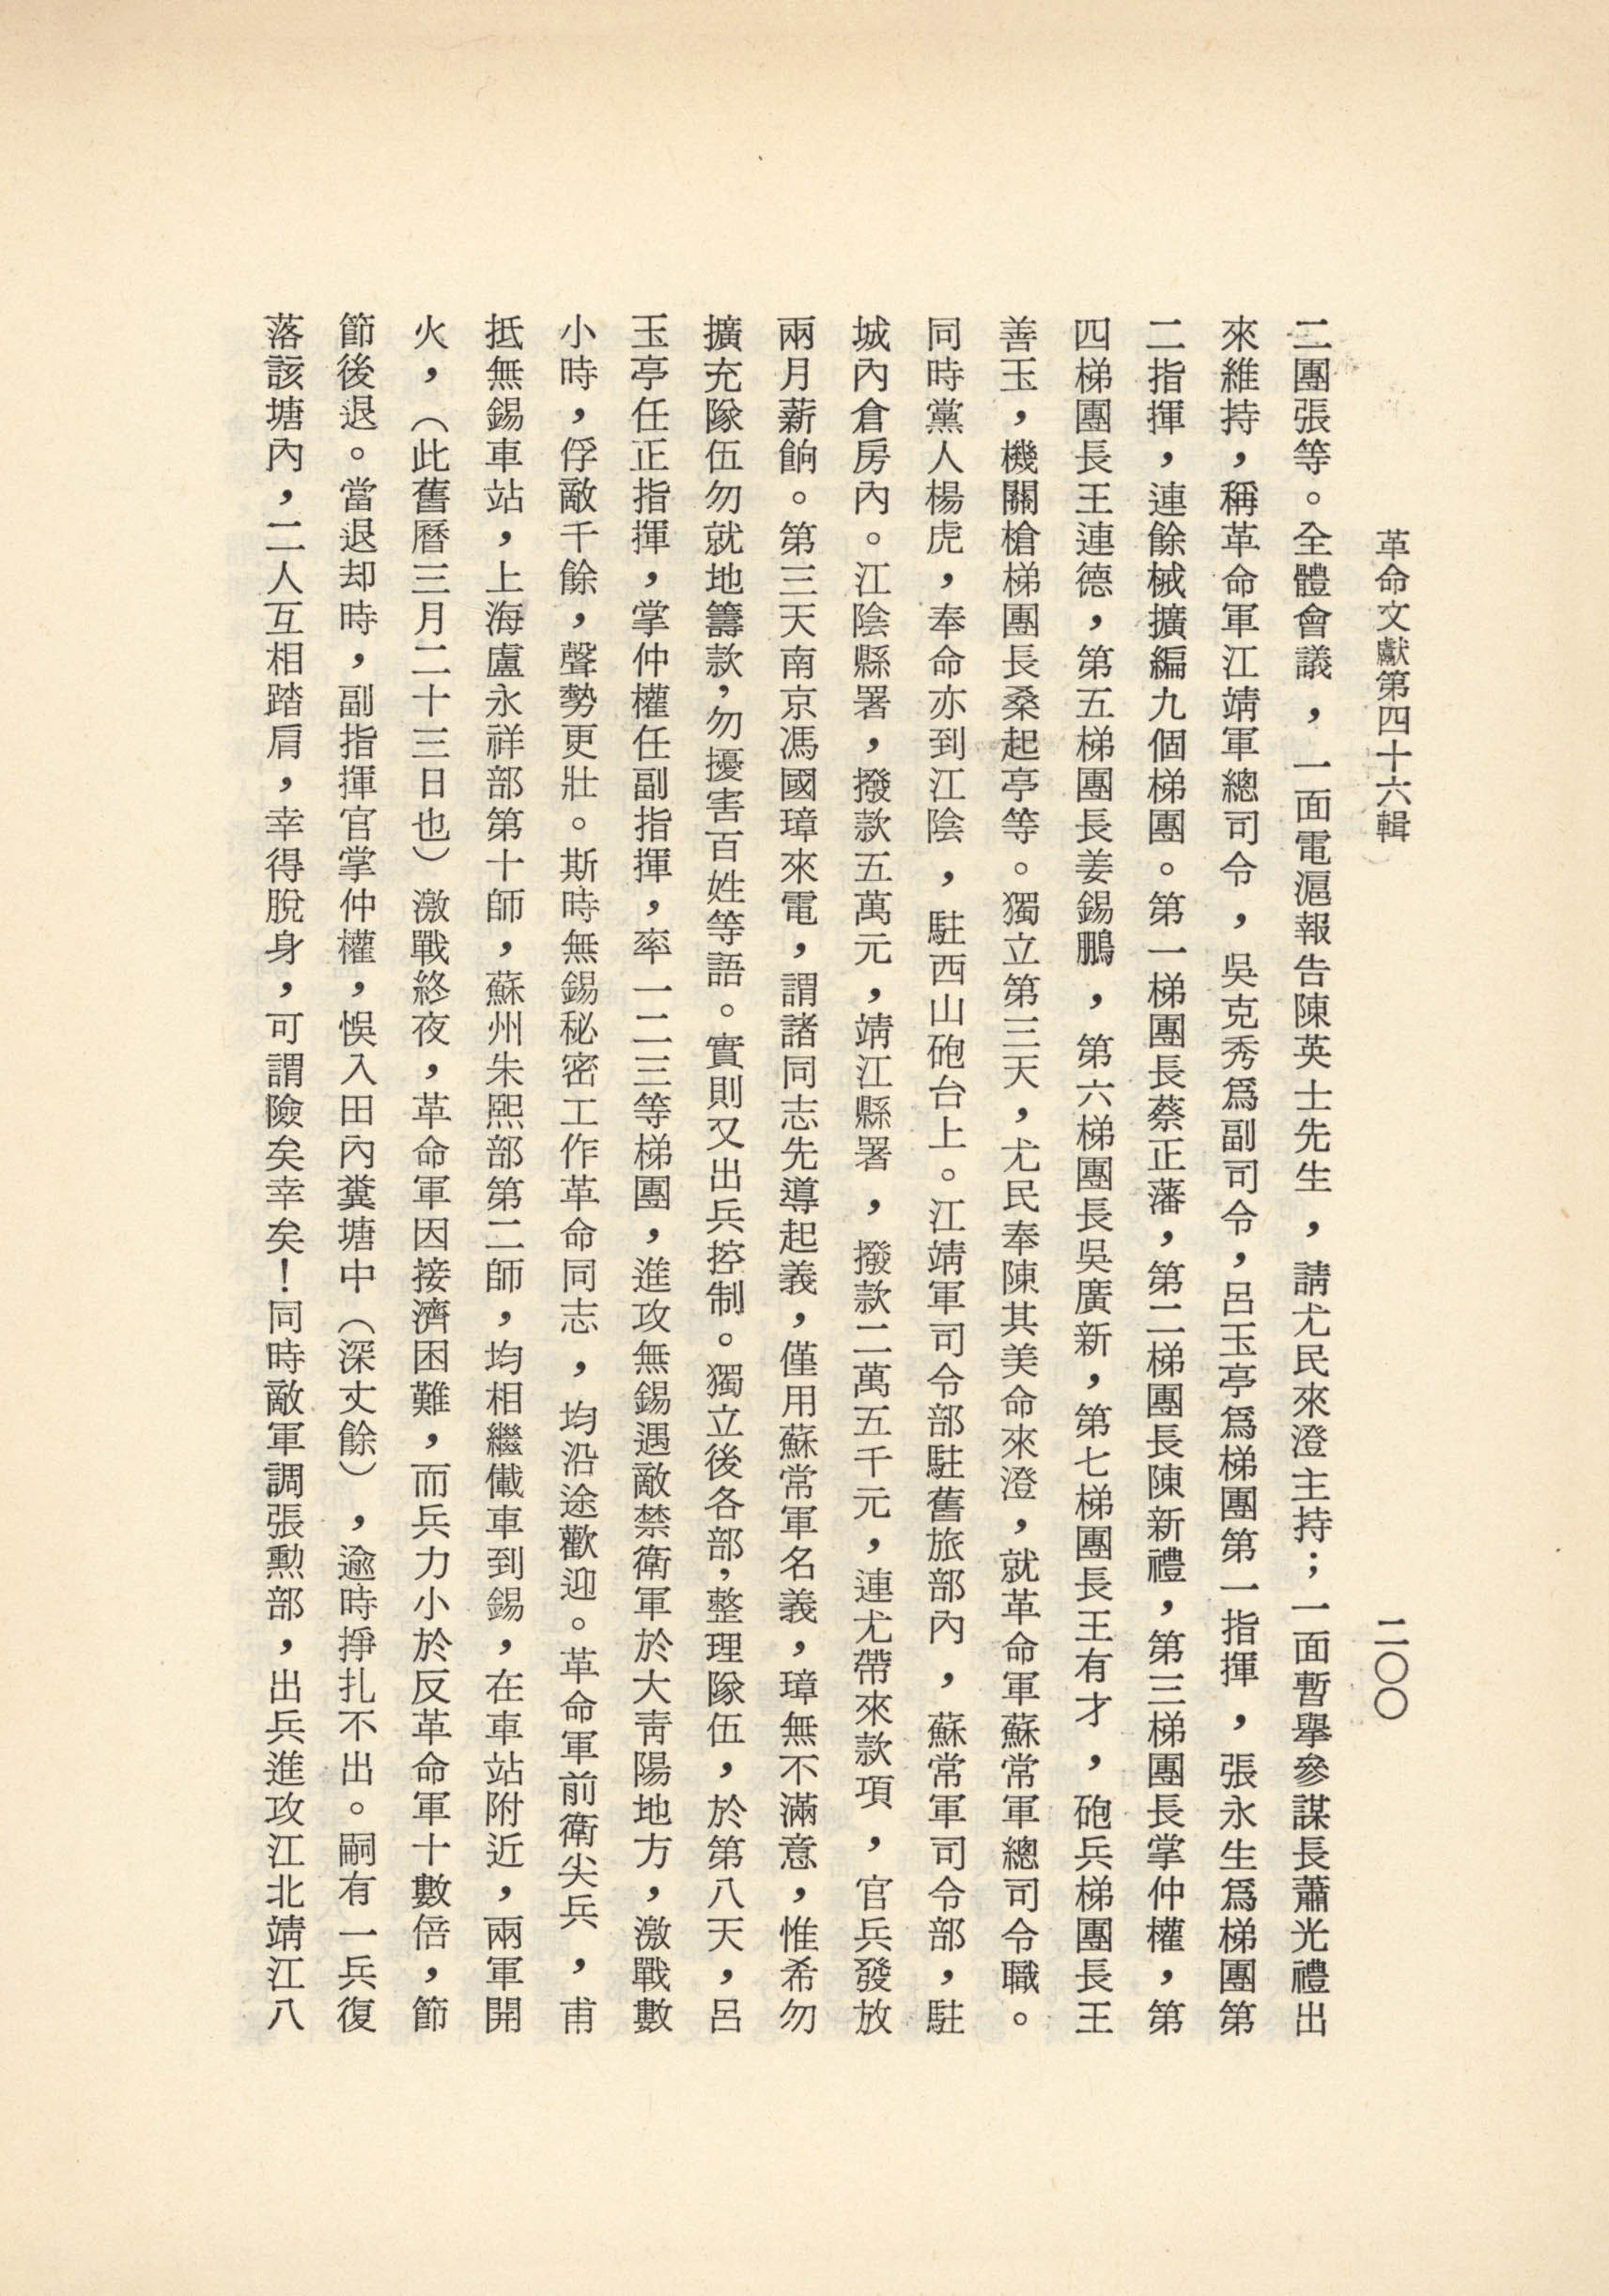 革命文獻第四十六輯
二〇〇
二團張等。全體會議，一面電滬報告陳英士先生，請尤民來澄主持；一面暫舉參謀長蕭光禮出
來維持，稱革命軍江靖軍總司令，吳克秀爲副司令，呂玉亭爲梯團第一指揮，張永生爲梯團第
二指揮，連餘械擴編九個梯團。第一梯團長蔡正藩，第二梯團長陳新禮，第三梯團長掌仲權，第
四梯團長王連德，第五梯團長姜錫鵬，第六梯團長吳廣新，第七梯團長王有才，砲兵梯團長王
善玉，機關槍梯團長桑起亭等。獨立第三天，尤民奉陳其美命來澄，就革命軍蘇常軍總司令職。
同時黨人楊虎，奉命亦到江陰，駐西山砲台上。江靖軍司令部駐舊旅部內，蘇常軍司令部，駐
城內倉房內。江陰縣署，撥款五萬元，靖江縣署，撥款二萬五千元，連尤帶來款項，官兵發放
兩月薪餉。第三天南京馮國璋來電，謂諸同志先導起義，僅用蘇常軍名義，璋無不滿意，惟希勿
擴充隊伍勿就地籌款，勿擾害百姓等語。實則又出兵控制。獨立後各部，整理隊伍，於第八天，呂
玉亭任正指揮，掌仲權任副指揮，率一二三等梯團，進攻無錫遇敵禁衛軍於大靑陽地方，激戰數
小時，俘敵千餘，聲勢更壯。斯時無錫秘密工作革命同志，均沿途歡迎。革命軍前衛尖兵，甫
抵無錫車站，上海盧永祥部第十師，蘇州朱熙部第二師，均相繼儎車到錫，在車站附近，兩軍開
火，（此舊曆三月二十三日也）激戰終夜，革命軍因接濟困難，而兵力小於反革命軍十數倍，節
節後退。當退却時，副指揮官掌仲權，悞入田內糞塘中（深丈餘），逾時掙扎不出。嗣有一兵復
落該塘內，二人互相踏肩，幸得脫身，可謂險矣幸矣！同時敵軍調張勳部，出兵進攻江北靖江八